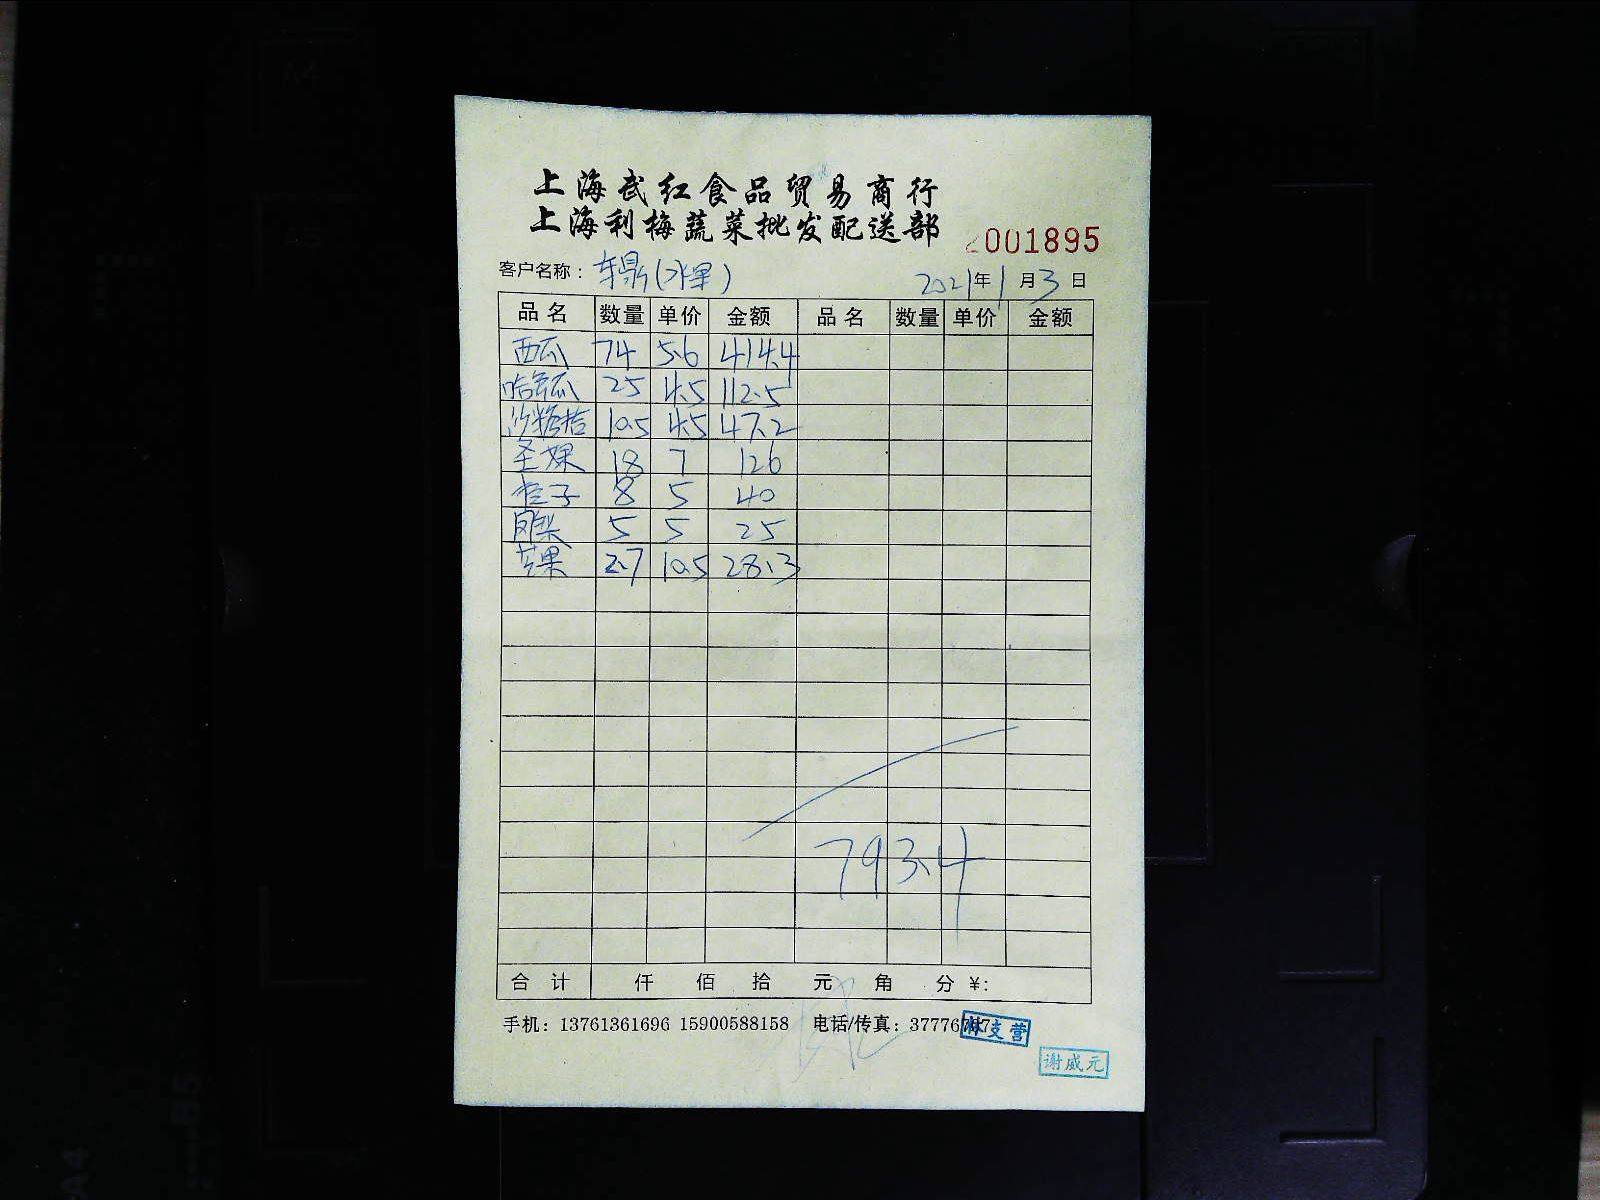 上海武红食品贸易商行
上海利梅蔬菜批发配送部
2001895
客户名称：东鼎(水果) 2021年1月3日
品名 数量 单价 金额 品名 数量 单价 金额
西瓜 74 5.6 414.4
哈蜜瓜 25 4.5 112.5
沙糖桔 10.5 4.5 47.2
圣女果 18 7 126
橙子 8 5 40
凤梨 5 5 25
芒果 2.7 10.5 28.3
793.4
合计 仟 佰 拾 元 角 分 ¥:
手机：13761361696 15900588158 电话/传真：37776767
林支营
谢威元
A4
A5
B5
A4